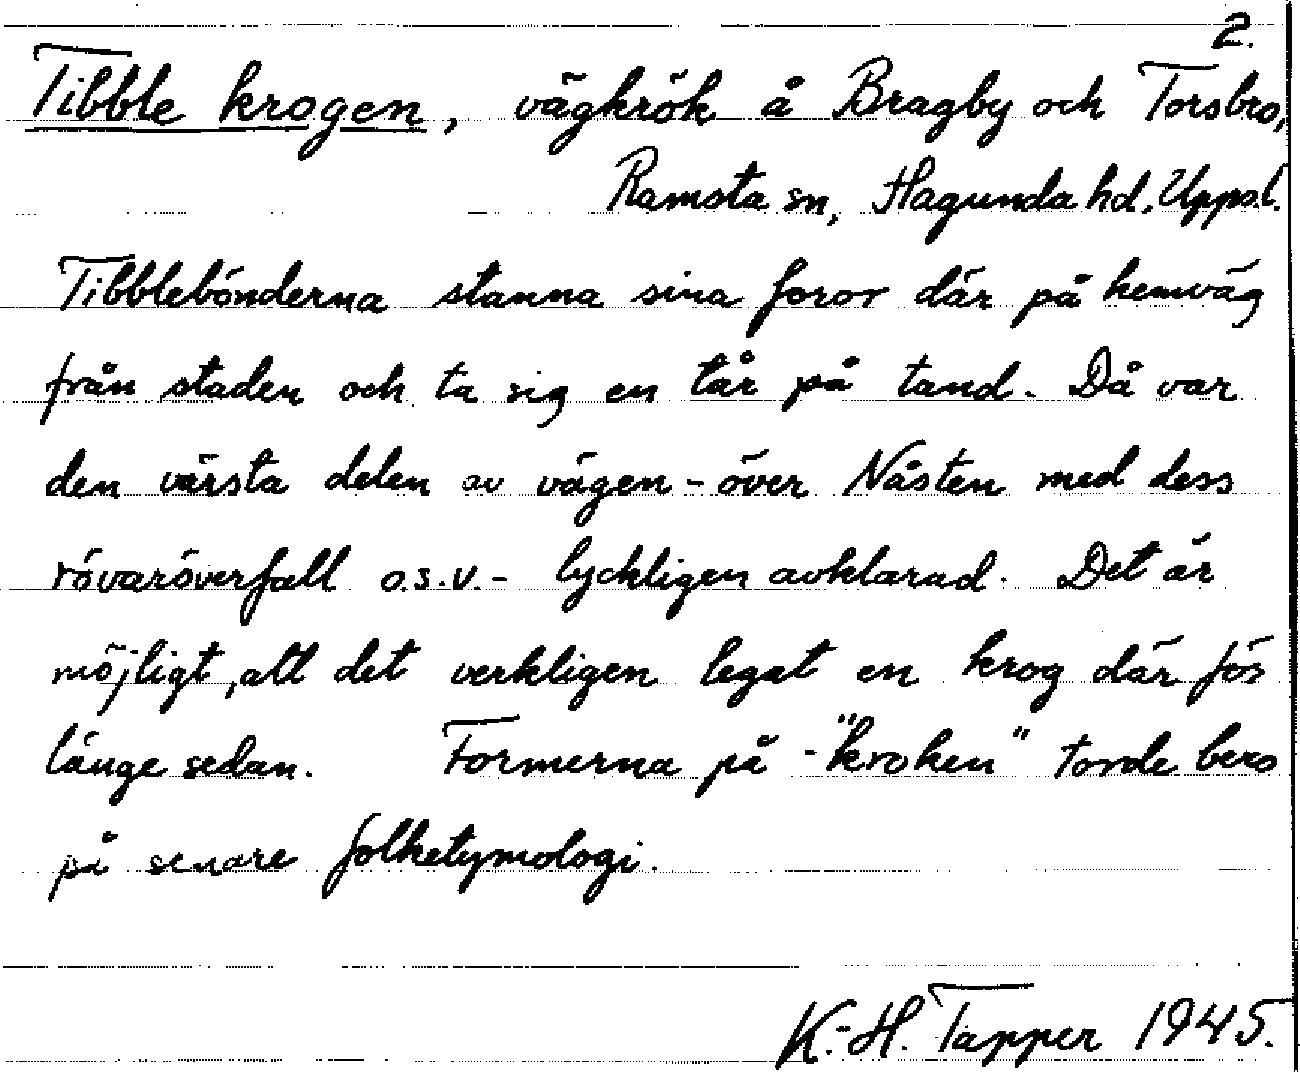 2.
Tibble krogen, vägkrök å Bragby och Torsbro,
Ramsta sn, Hagunda hd, Uppsl.
Tibblebönderna stanna sina foror där på hemväg
från staden och ta sig en tår på tand. Då var
den värsta delen av vägen - över Nåsten med dess
rövaröverfall o.s.v. - lyckligen avklarad. Det är
möjligt, att det verkligen legat en krog där för
länge sedan. Formerna på -"kroken" torde bero
på senare folketymologi.
K.-H. Tapper 1945.